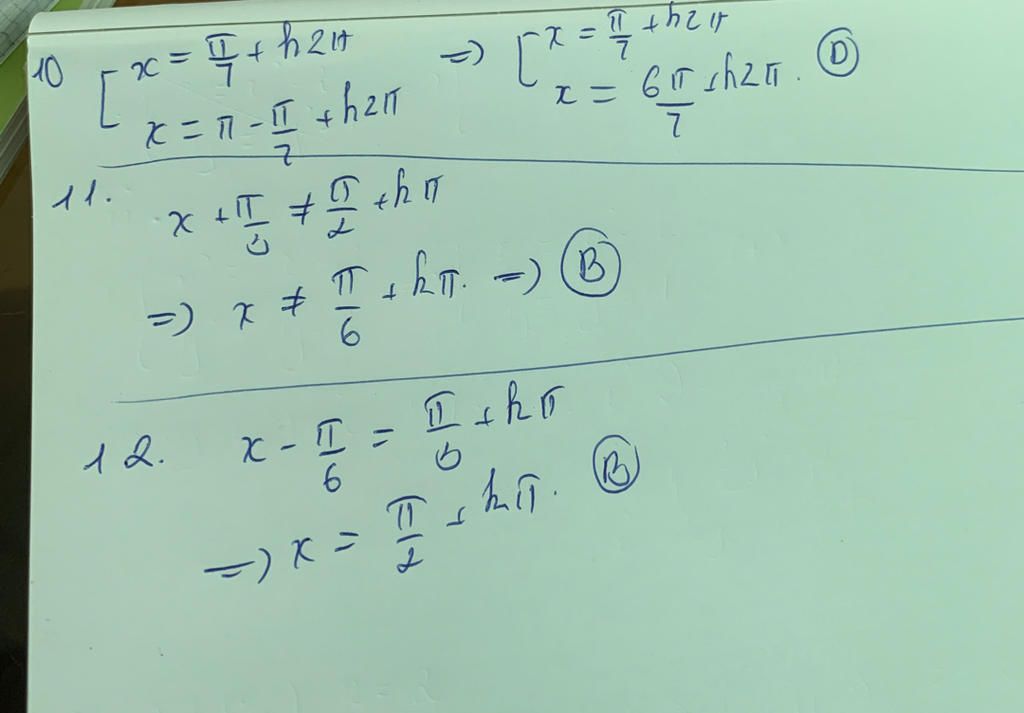 10 [ x = π/7 + k2π => [ x = π/7 + k2π
x = π - π/7 + k2π x = 6π/7 + k2π. (D)
11. x + π/3 ≠ π/2 + kπ
=> x ≠ π/6 + kπ. => (B)
12. x - π/6 = π/3 + kπ
=> x = π/2 + kπ. (B)